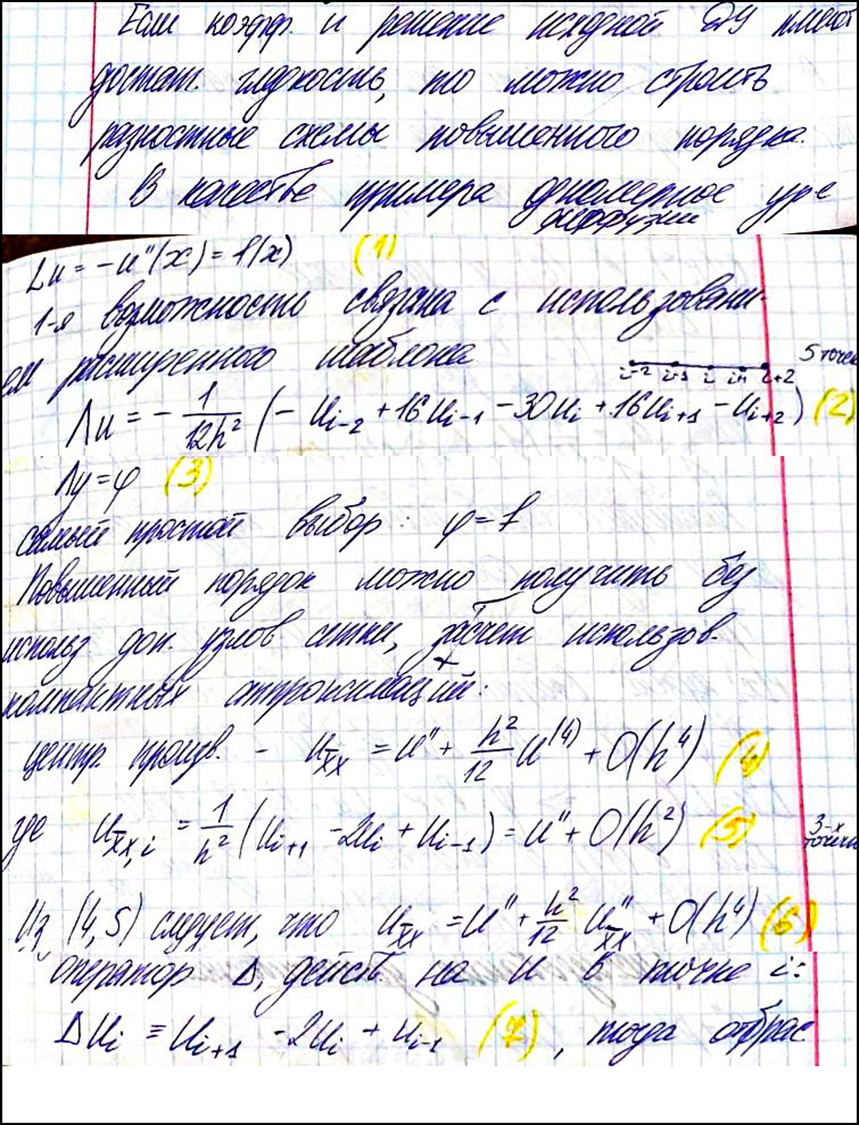 Если коэфф. и решение исходной ДУ имеют
достат. гладкость, то можно строить
разностные схемы повышенного порядка.
В качестве примера одномерное ур-е
диффузии
Lu = -u''(x) = f(x) (1)
1-я возможность связана с использовани-
ем расширенного шаблона
i-2 i-1 i i+1 i+2 5 точек
Λu = - 1/12h² (- u_{i-2} + 16u_{i-1} - 30u_i + 16u_{i+1} - u_{i+2}) (2)
Λy = φ (3)
самый простой выбор: φ = f
Повышенный порядок можно получить без
использ доп. узлов сетки, за счёт использов.
компактных аппроксимаций:
центр. произв. - u_{x̄x} = u'' + h²/12 u^{(4)} + O(h⁴) (4)
где u_{x̄x,i} = 1/h² (u_{i+1} - 2u_i + u_{i-1}) = u'' + O(h²) (5) 3-х
точечн
Из (4,5) следует, что u_{x̄x} = u'' + h²/12 u''_{x̄x} + O(h⁴) (6)
оператор Δ, действ. на u в точке i:
Δu_i ≡ u_{i+1} - 2u_i + u_{i-1} (7), тогда отбрас.